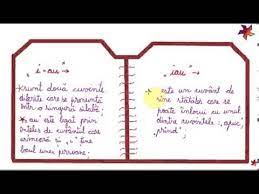 „i-au" →
* sunt două cuvinte
diferite care se pronunță
într-o singură silabă;
* „au" este legat prin
înțeles de cuvântul care
urmează și „i" ține
locul unei persoane;
„iau" →
* este un cuvânt de
sine stătător care se
poate înlocui cu unul
dintre cuvintele: „apuc",
„prind";